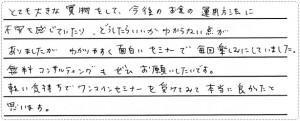 とても大きな買物をして、今後のお金の運用方法に
不安を感じていたり、どうしたらいいかわからない点が
ありましたが わかりやすく面白いセミナーで 毎回楽しみにしていました。
無料コンサルティングも ぜひお願いしたいです。
軽い気持ちで ワンコインセミナーを受けてみて 本当に良かったと
思います。